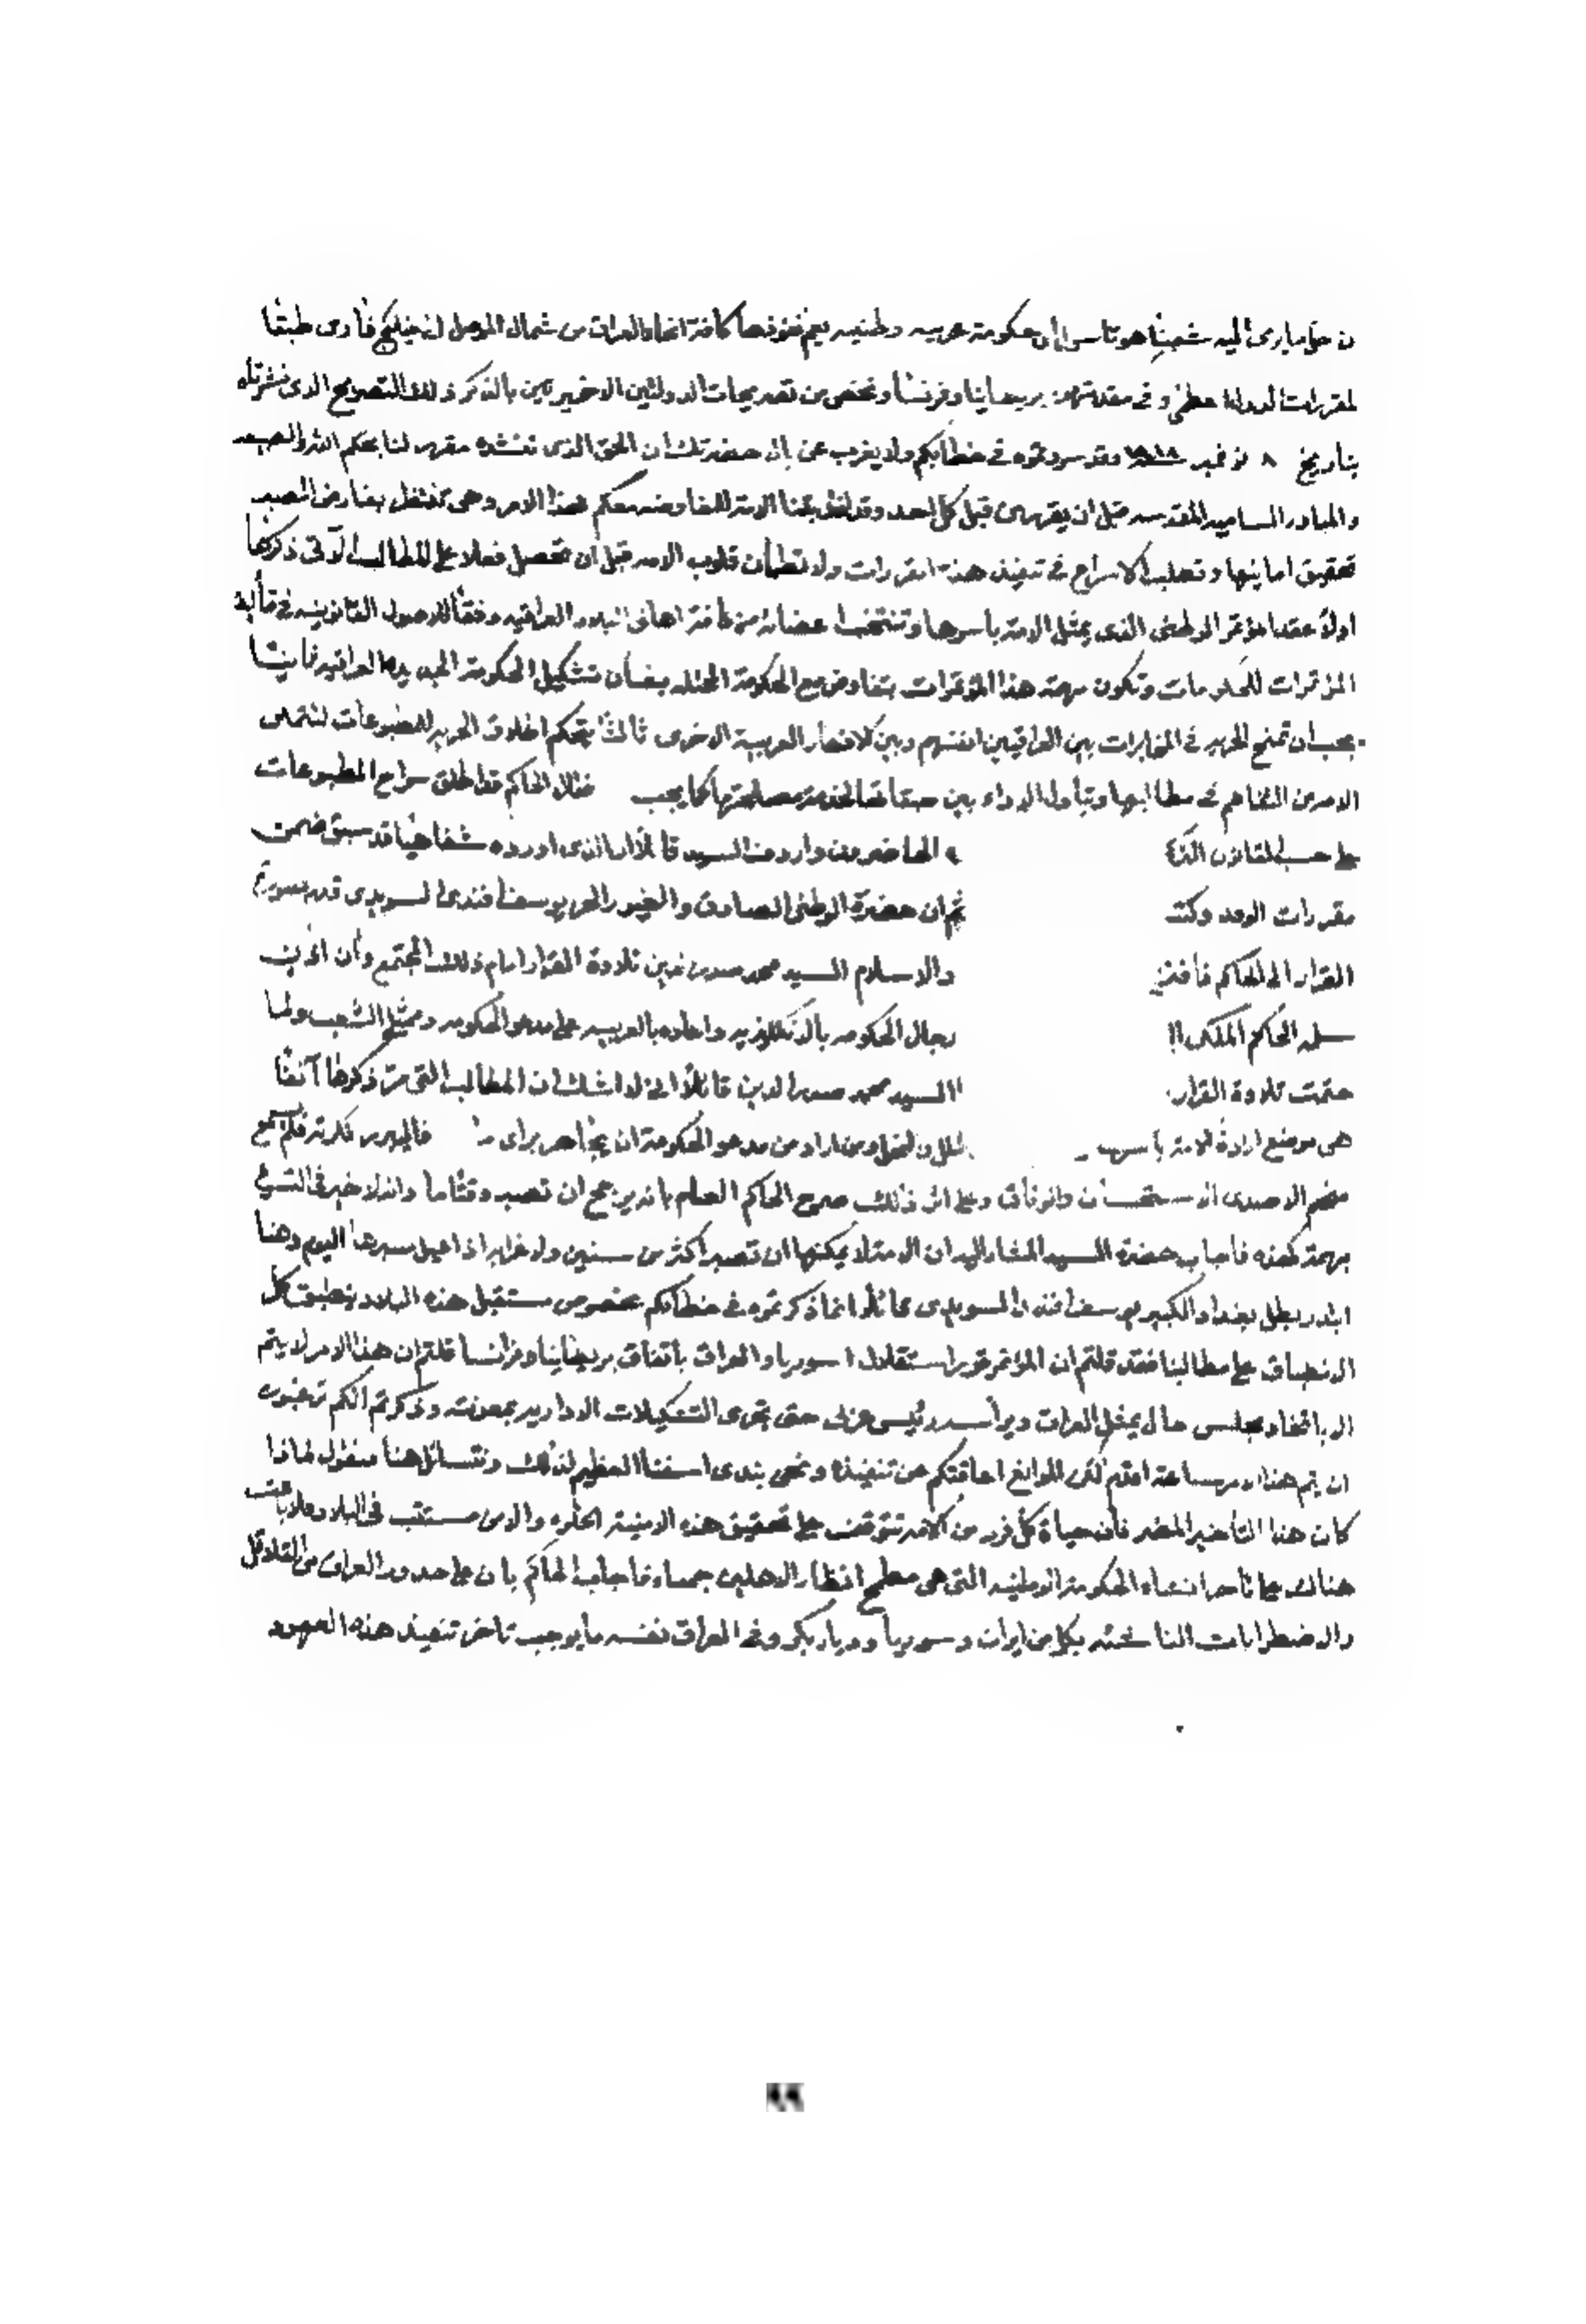 ن جل ما يرمى اليه شعبنا هو تأسيس حكومة عربيه وطنيه يعم نفوذها كافة انحاء العراق من شمال الموصل الى خليج فارس طبقا
لمقررات الدول العظمى وفى مقدمتهن بريطانيا وفرنسا ونخص من تصريحات الدولتين الاخيرتين بالذكر ذلك التصريح الذى نشرتاه
بتاريخ ٨ نوفمبر ١٩١٨ وقد سردتموه فى خطابكم ولا يغرب عن بال حضرتك ان الحق الذى ننشده مقرر لنا بحكم الشرائع
والمبادئ الساميه المقدسه قبل ان يقرر من قبل كل احد وقد انتدبتنا الامة للمفاوضه معكم بهذا الامر وهى تنتظر بفارغ الصبر
تحقيق امانيها وتطلب الاسراع فى تنفيذ هذه المقررات ولا تطمأن قلوب الامه قبل ان تحصل فعلا على المطالب الآتى ذكرها
اولا عقد المؤتمر الوطنى الذى يمثل الامة بأسرها وتنتخب اعضائه من كافة اهالى البلاد العراقيه وفقا للاصول القانونيه فى
المؤتمرات للحكومات وتكون مهمة هذا المؤتمر ان يتفاوض مع الحكومة المحتله بشأن تشكيل الحكومة الجديدة العراقيه ثانيا
يجب ان تمنح الحريه فى المخابرات بين العراقيين انفسهم وبين الاقطار العربية الاخرى ثالثا يتحكم اطلاق الحريه للمطبوعات لتتمكن
الامه من التفاهم فى مطالبها وتبادل الاراء بين طبقاتها لخدمة مصلحتها كما يجب فقال الحاكم قد اطلق سراح المطبوعات
على حسب القانون التركى الحاضرين واردف السيد قائلا ان الذى اورده شفاهيا قد سبق ضمن
مقررات الوفد وكتب ثم ان حضرة الوطنى الصادق والغيور الحر يوسف افندى السويدى قدم صورة
القرار الى الحاكم والاسلام السيد محمد صدر الدين تلاوة القرار امام ذلك المجتمع وأن
سله الحاكم الملكى رجال الحكومه بالانكليزيه واعاده بالعربيه على مدعو الحكومه وممثلى الشعب ولما
ختمت تلاوة القرار السيد محمد صدر الدين قائلا انى لا اشك ان المطالب التى مر ذكرها آنفا
هى موضع ارادة الامة بأسرها ومن اراد من مدعو الحكومة ان يجاهر برأى ما فليبرز فكرته فلم يسمع
منهم الا صدى الاستحسان والوفاق وعلى اثر ذلك صرح الحاكم العام بانه يرجح ان تصبر وقتا ما وانه لا خير فى التسرع
بمهمة كهذه فاجاب حضرة السيد المشار اليه ان الامة لا يمكنها ان تصبر اكثر من سنين ولا غرابه اذا عيل صبرها اليوم وهنا
ابتدر بطل بغداد الكبير يوسف افندى السويدى قائلا انما ذكرتموه فى خطابكم بخصوص مستقبل هذه البلاد ينطبق كل
الانطباق على مطالبنا فقد قلتم ان المؤتمر قرر استقلال سوريا والعراق بأتفاق بريطانيا وفرانسا قلتم ان هذا الامر لا يتم
الا باتخاذ مجلس حال يمثل العراق ويرأسه رئيس عربى حتى تجرى التشكيلات الاداريه بمعونته وذكرتم انكم ترغبون
ان يتم هذا الامر ساعة اقدم لكن الموانع اعاقتكم عن تنفيذه ونحن نبدى اسفنا العظيم لذلك ونتسائل هنا فنقول لماذا
كان هذا التأخير المضر فأن حياة كل فرد من الامة تتوقف على تحقيق هذه الامنية الحلوه والامن مستتب فى البلاد فلا باعث
هناك على تأخر انشاء الحكومة الوطنيه التى هى مطمح انظار الاهلين جمعاء فاجاب الحاكم بان على حدود العراق من القلاقل
والاضطرابات الناشئه بكل من ايران وسوريا وديار بكر وفى العراق نفسه ما يوجب تاخر تنفيذ هذه العهود
٩٩